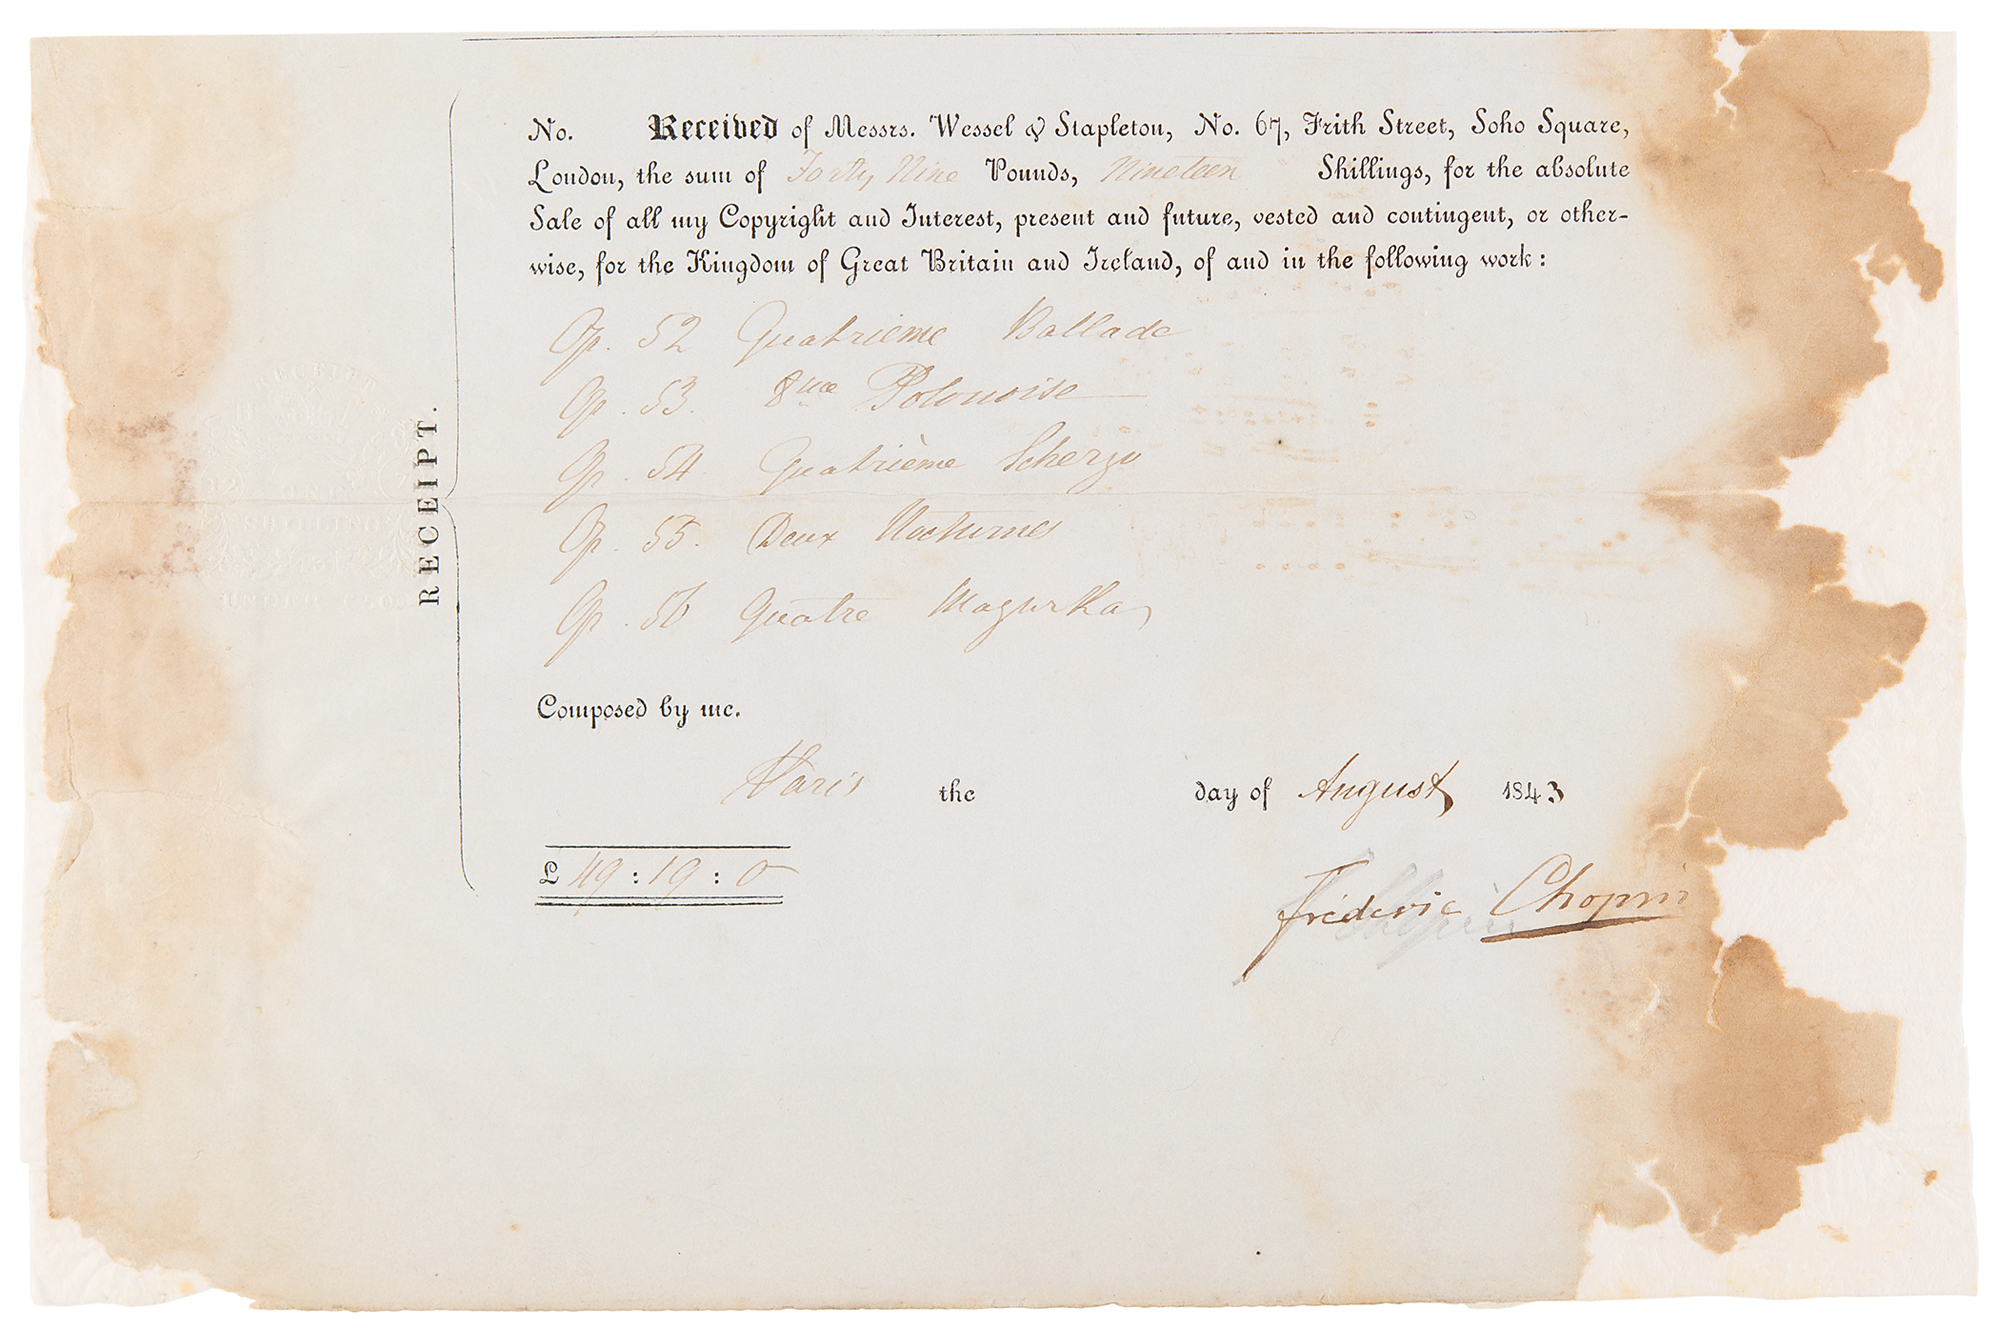 No. Received of Messrs. Wessel & Stapleton, No. 67, Frith Street, Soho Square,
London, the sum of Forty Nine Pounds, Nineteen Shillings, for the absolute
Sale of all my Copyright and Interest, present and future, vested and contingent, or other-
wise, for the Kingdom of Great Britain and Ireland, of and in the following work:
Op. 52 Quatrieme Ballade
Op. 53. 8me Polonoise
Op. 54 Quatrième Scherzo
Op. 55. Deux Nocturnes
Op. 56 Quatre Mazurkas
Composed by me.
Paris the day of August 1843
£ 49 : 19 : 0
Fréderic Chopin
RECEIPT.
RECEIPT
ONE
SHILLING
UNDER £50